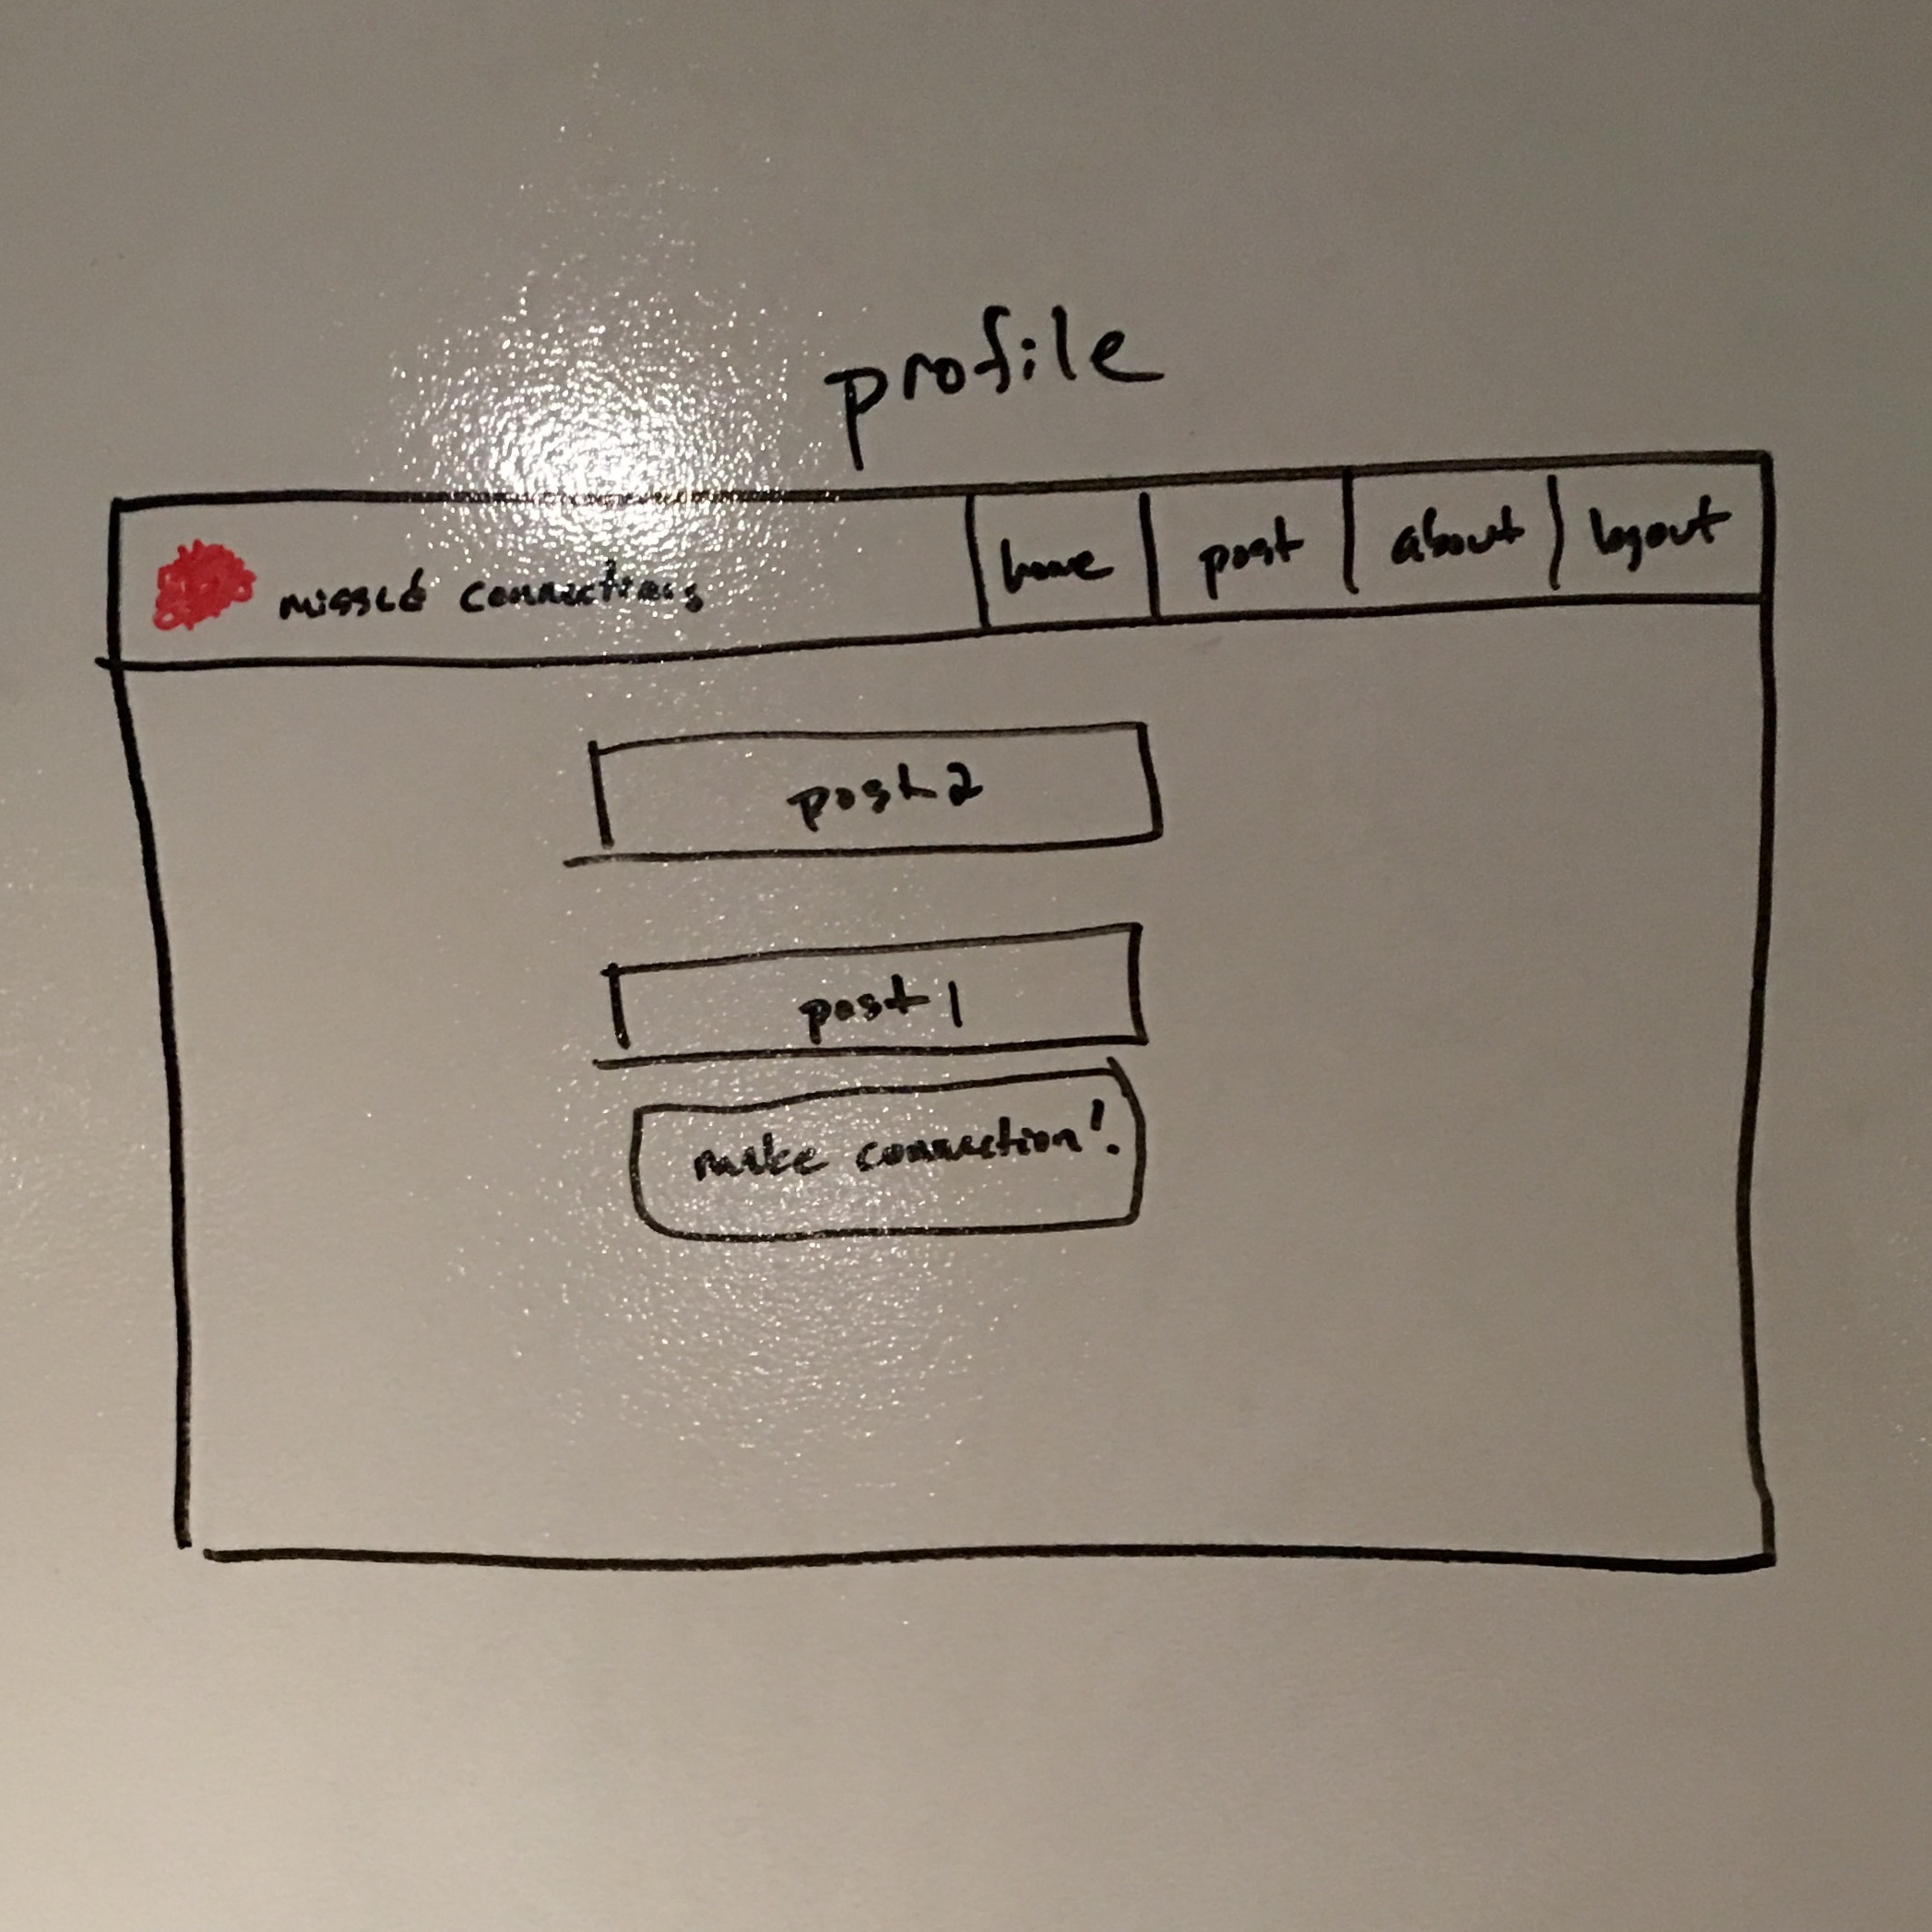 profile
missed connections
home post about logout
post 2
post 1
make connection!